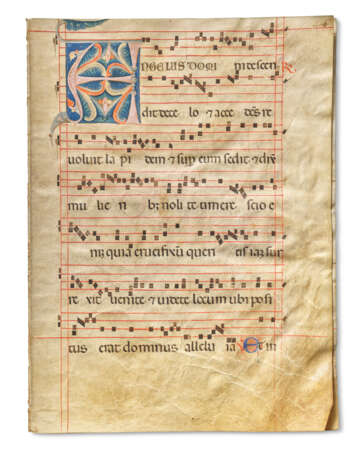 ANGELUS DOMI ni descen
dit de ce lo & acce dens re
voluit la pi dem & sup eum sedit & dix
mu lie ri b; noli te timere scio e
nīz quia crucifixū quen tis iam sur
re xit venite & videte locum ubi posi
tus erat dominus allelu ia Et in